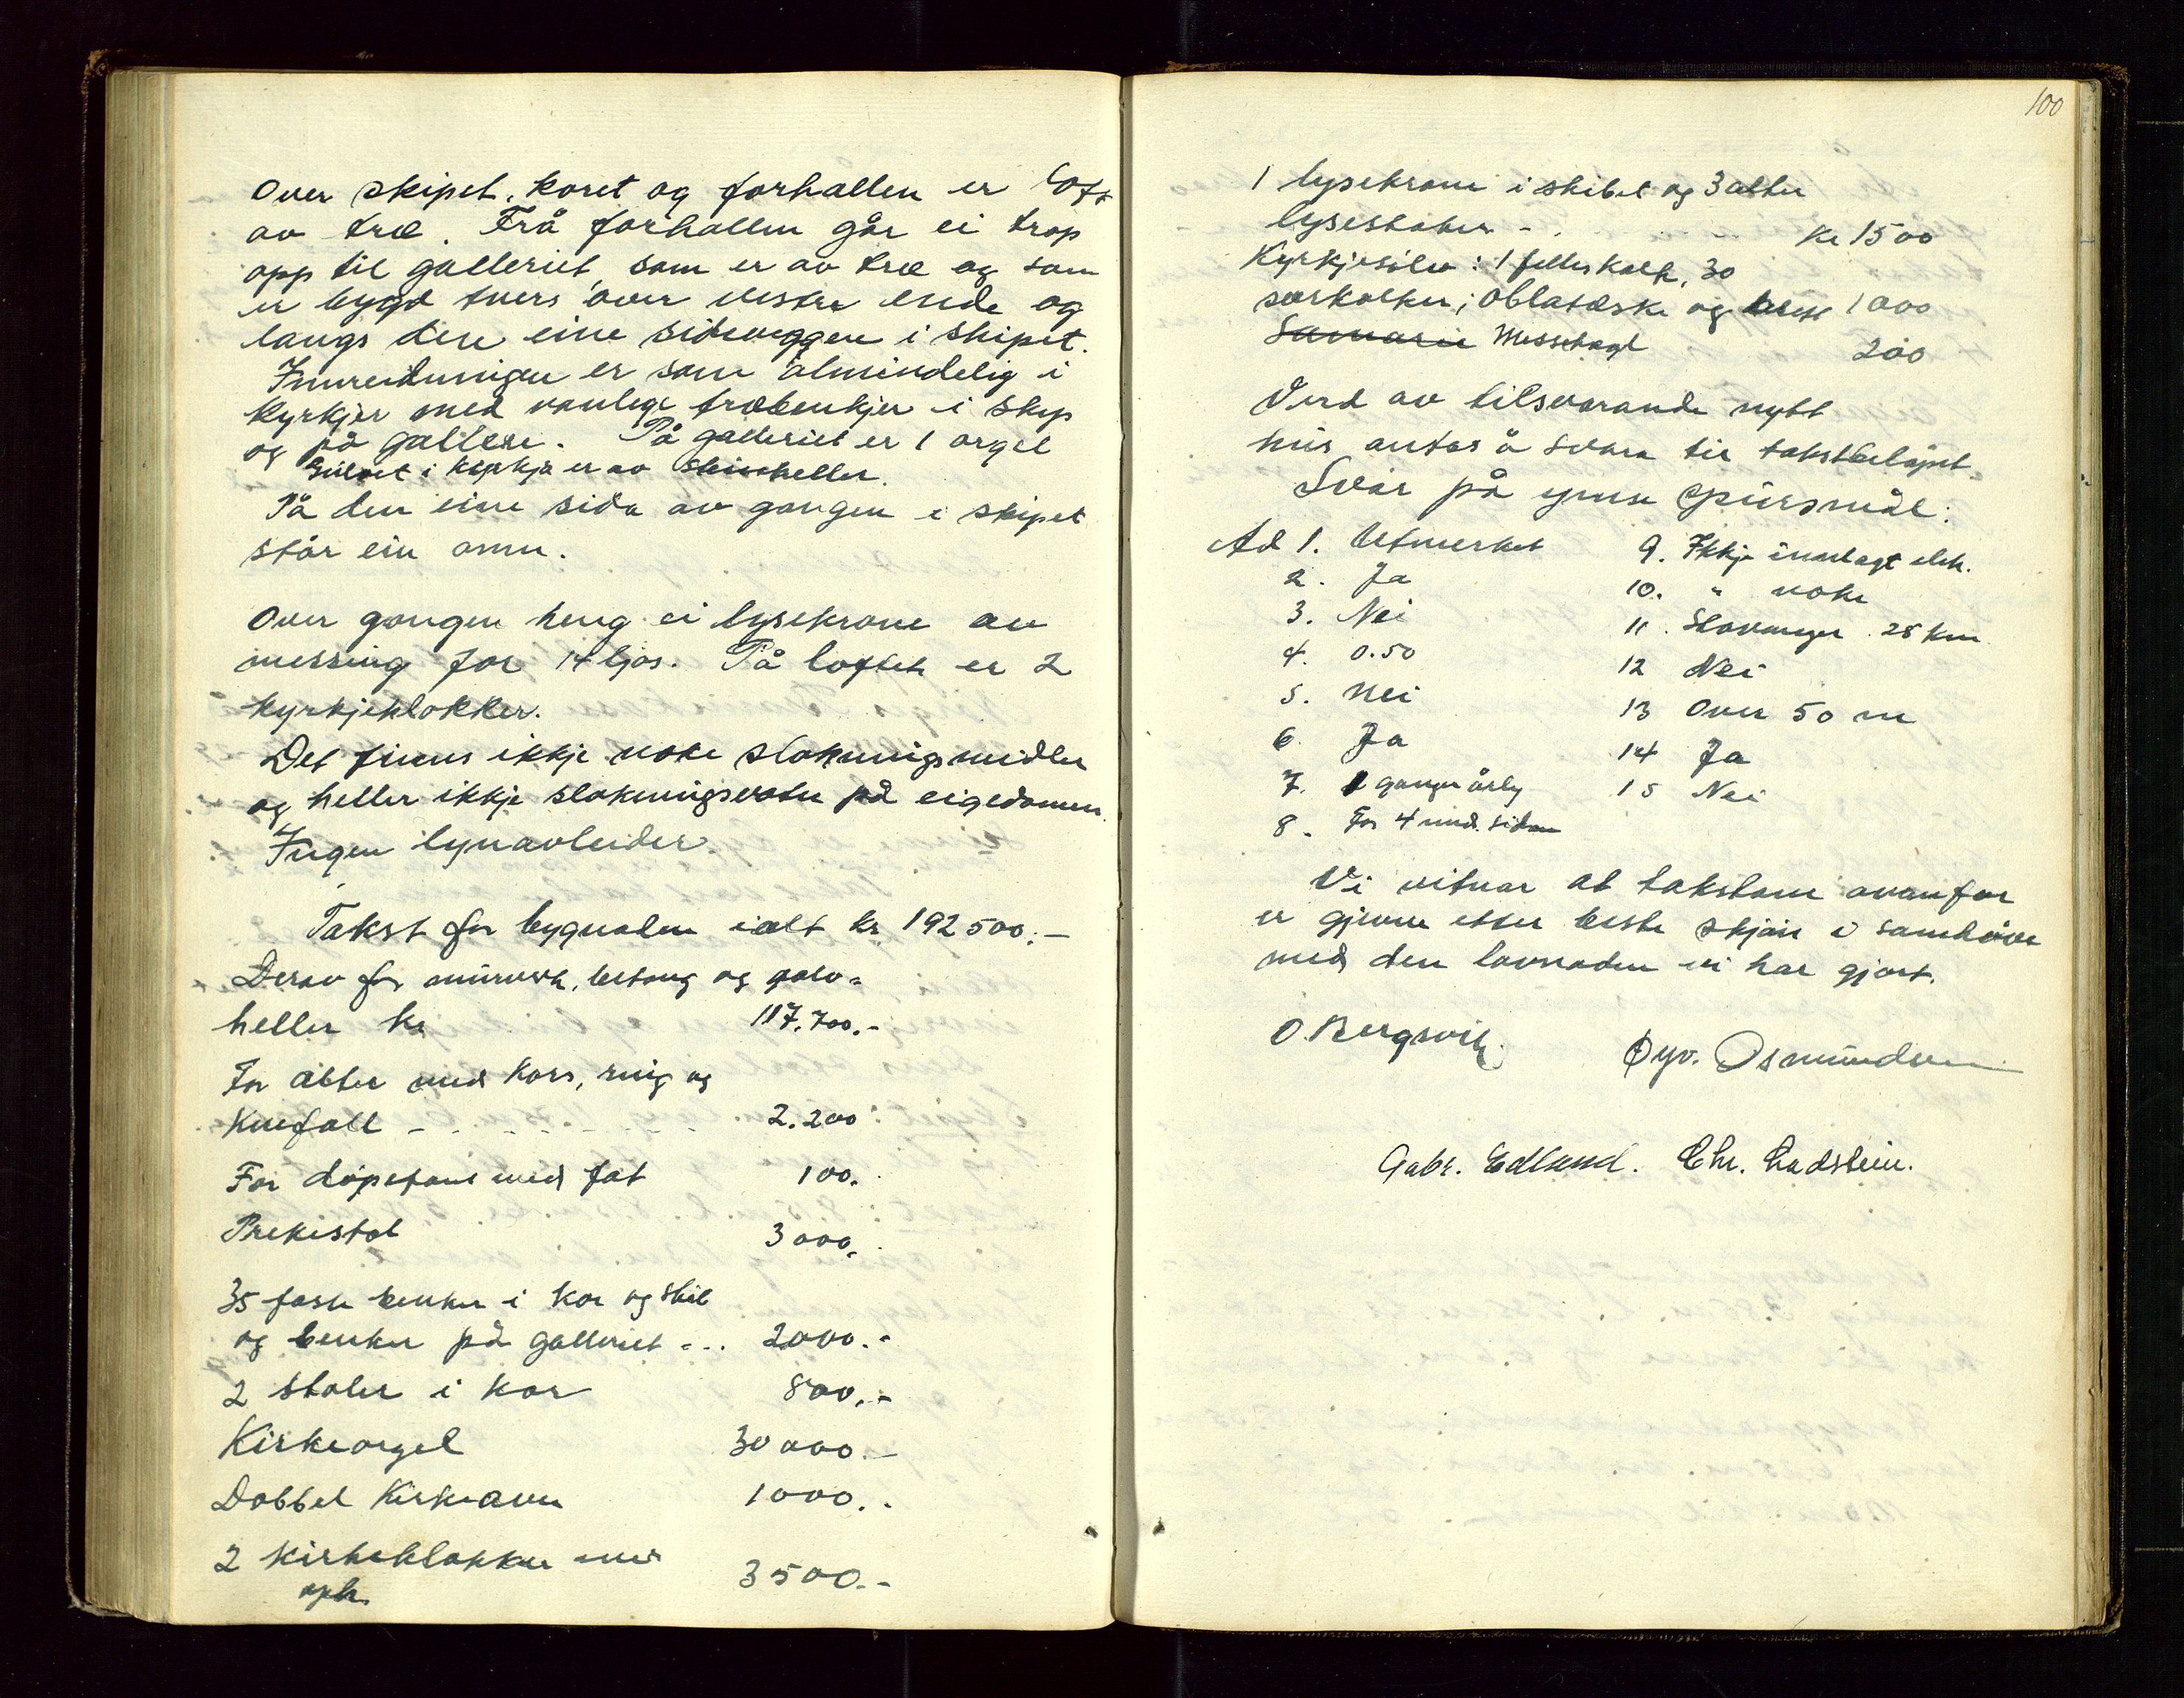 Over skipet, koret og forhallen er loft
av tre. Frå forhallen går ei trap
opp til galleriet, som er av tre og som
er bygd tvers over vestre ende og
langs den eine sideveggen i skipet.
Innreidningen er som almindelig i
kyrkjer med vanlege trebenkjer i skip
og på galleri. På galleriet er 1 orgel
Gulvet i kyrkja er av steinheller.
På den eine sida av gangen i skipet
står ein omn.
Over gangen heng ei lysekrone av
messing for 14 ljos. På loftet er 2
kyrkjeklokker.
Det finns ikkje noke slokningsmidler
og heller ikkje slokningsvatn på eigedomen.
Ingen lynavleider.
Takst for bygnaden ialt kr 192 500.-
Derav for murverk, betong og golv-
heller kr 117.700.-
For alter med kors, ring og
knefall - - - - - - - 2.200
For døpefont med fat 100.
Prekistol 3000.
35 faste benker i kor og skib
og benker på galleriet - .. 2000.-
2 stoler i kor 800.-
Kirkeorgel 30 000.-
Dobbel Kirkeovn 1000.-
2 kirkeklokker med 3500.-
oph.
100
1 lysekrone i skibet og 3 alter
lysestaker - . . . - kr 1500
Kyrkjesølv: 1 felles kalk, 30
særkalker, oblatæske og 1000
Messehagl 200
Verd av tilsvarande nytt
hus antas å svara til takstbeløpet.
Svar på ymse spursmål:
Ad 1. Utmerket 9. Ikkje innlagt elek.
2. Ja 10. " noke
3. Nei 11. Stavanger 28 km
4. 0.50 12 Nei
5. Nei 13 Over 50 m
6. Ja 14 Ja
7. 1 ganger årleg 15 Nei
8. For 4 mnd. sidan
Vi vitnar at takstane ovanfor
er gjevne etter beste skjøn i samhøve
med den lovnaden vi har gjort.
O. Bergsvik. Øyv. Osmundsen
Gabr. Edland. Chr. Ladstein.